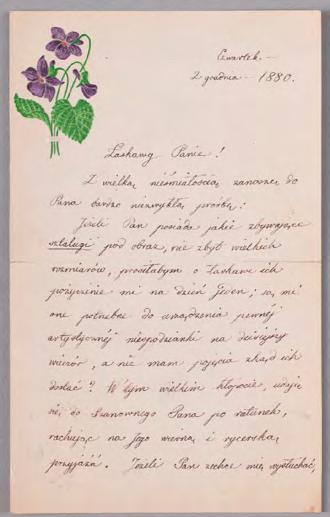 Czwartek. -
2 grudnia - 1880.
Łaskawy Panie!
Z wielką nieśmiałością zanoszę do
Pana bardzo niezwykłą prośbę:
Jeżeli Pan posiada jakie zbywające
sztalugi pod obraz, nie zbyt wielkich
rozmiarów, prosiłabym o łaskawe ich
pożyczenie mi na dzień jeden; są mi
one potrzebne do urządzenia pewnej
artystycznej niespodzianki na dzisiejszy
wieczór, a nie mam pojęcia zkąd ich
dostać? W tym wielkim kłopocie, udaję
się do Szanownego Pana po ratunek,
rachując na Jego wierną i rycerską
przyjaźń. Jeżeli Pan zechce mię wysłuchać,